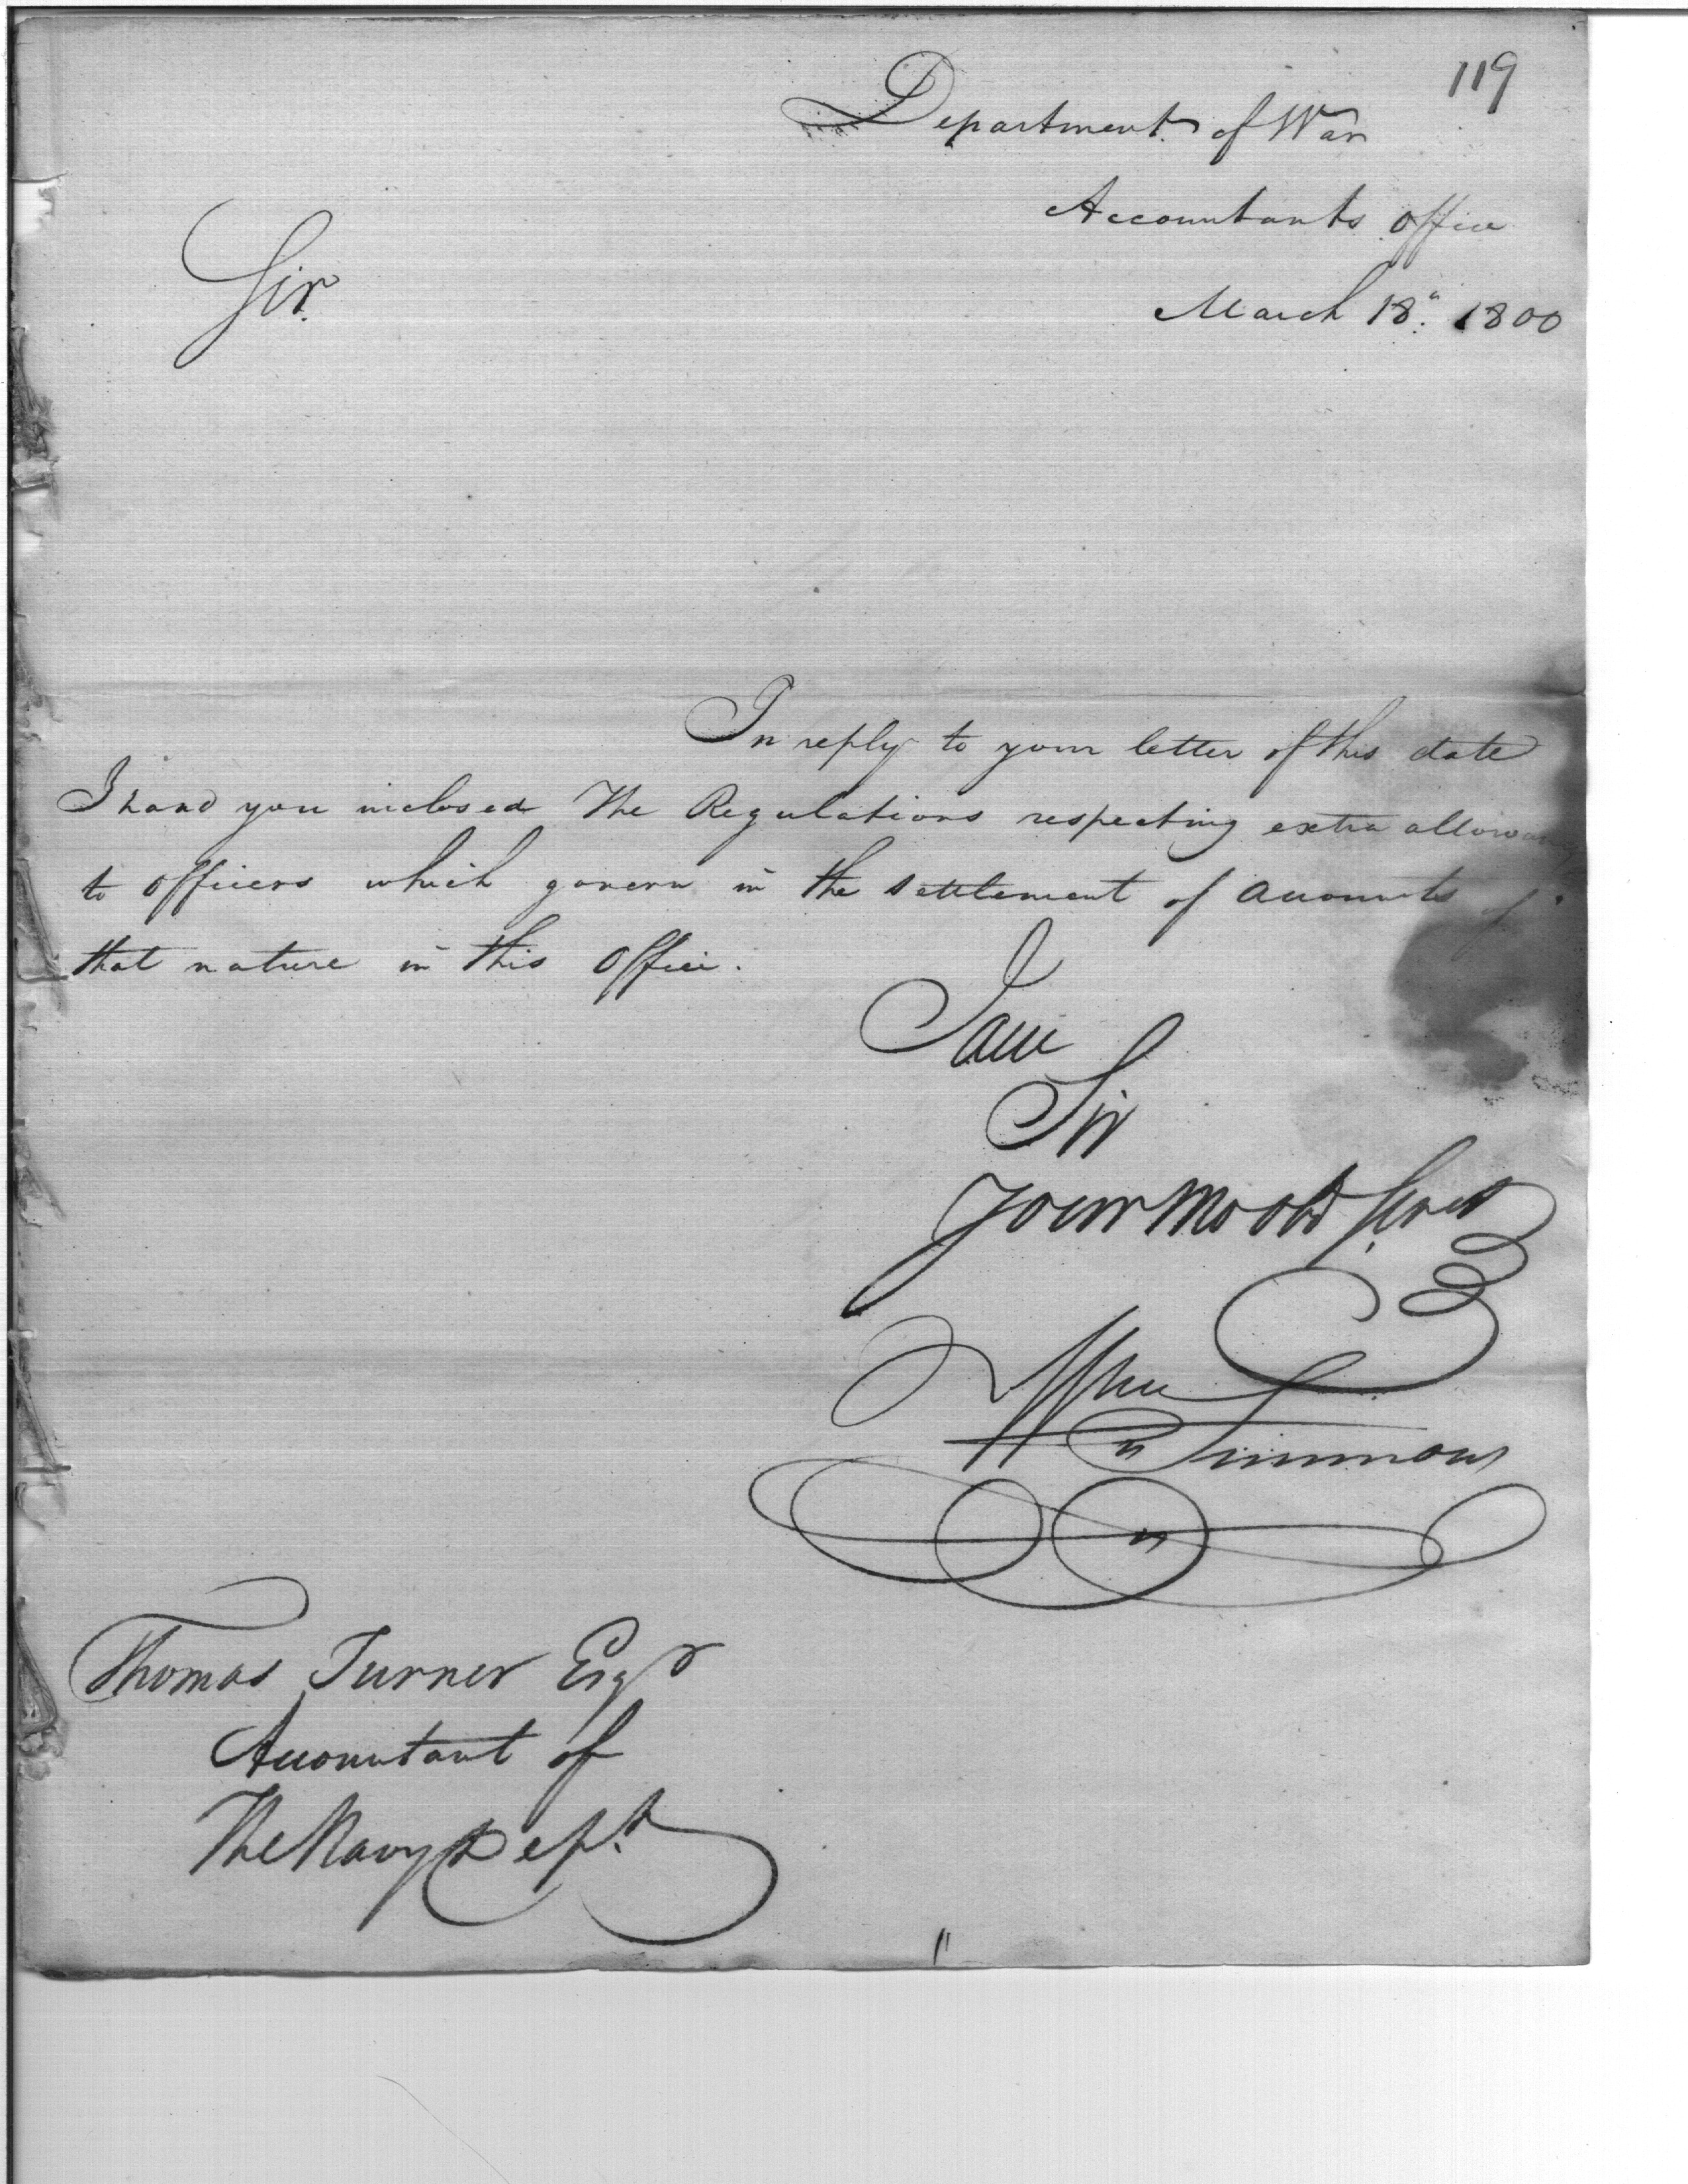 119
Department of War
Accountants office
March 18" 1800
Sir.
In reply to your letter of this date
I hand you inclosed The Regulations respecting extra
to officers which govern in the settlement of accounts of
that nature in this Office.
I am
Sir
Your Mo Obt Servt
Wm Simmons
Thomas Turner Esqr
Accountant of
The Navy Dept